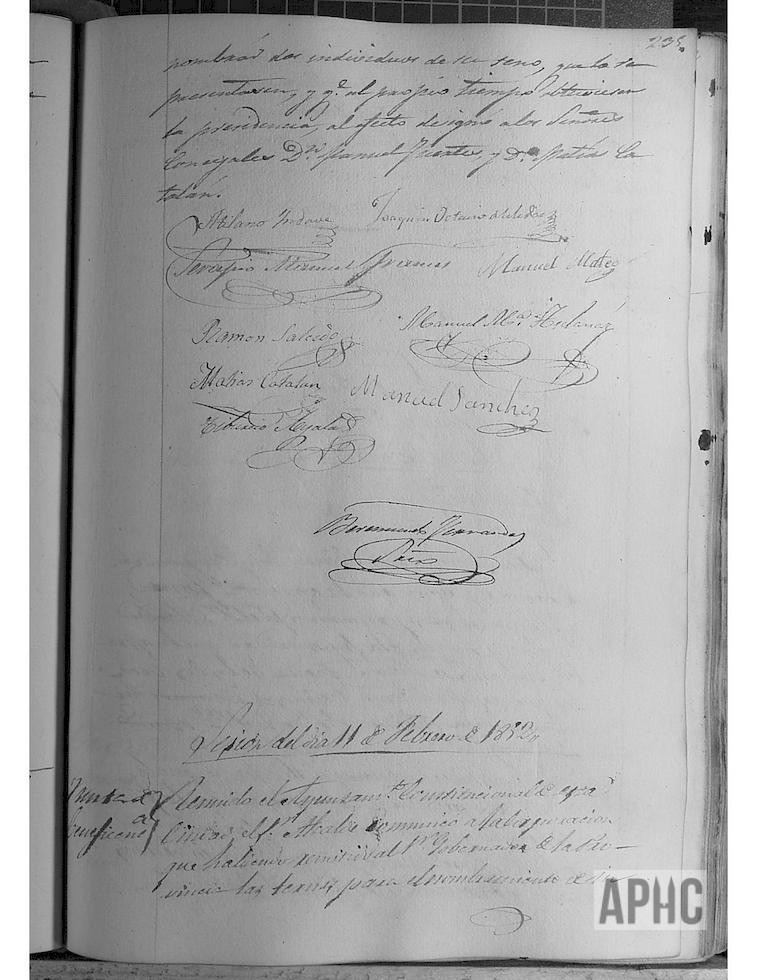 238.
nombrar dos individuos de su seno, que la re
presentasen, y q.e al propio tiempo obtuviesen
la presidencia, al efecto designo a los Señores
Concejales D.n Manuel Fuentes, y D.n Matias Ca
talan.
Atilano Joaquin Octavio de Toledo
Serapio Manuel Manuel Mateo
Ramon Salcedo Manuel M.a
Matias Catalan Manuel Sanchez
Tiburcio Ayala
Bermundo Fernandez
Sesion del dia 11 de Febrero de 1852,,
Junta de
Beneficenc.a
Reunido el Ayuntam.to Constitucional de esta
Ciudad el S.r Alcalde comunicó a la Corporacion
que habiendo remitido al S.r Gobernador de la Pro-
vincia las ternas para el nombramiento de
APHC